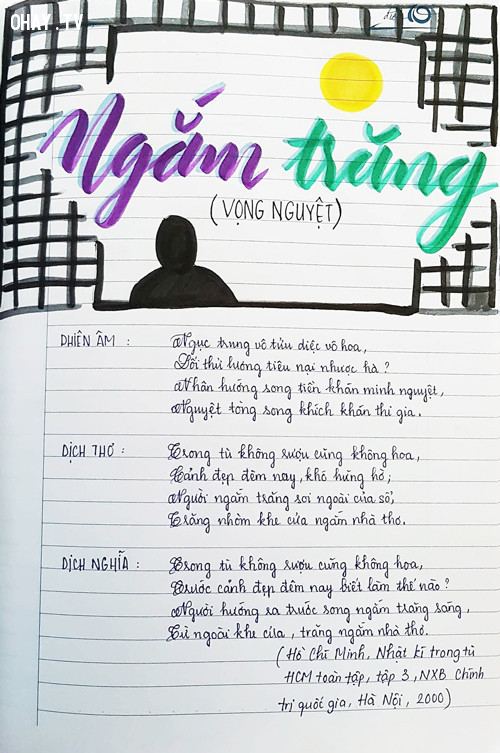 OHAY.TV
Ngắm trăng
(VỌNG NGUYỆT)
PHIÊN ÂM : Ngục trung vô tửu diệc vô hoa,
Đối thử lương tiêu nại nhược hà ?
Nhân hướng song tiền khán minh nguyệt,
Nguyệt tòng song khích khán thi gia.
DỊCH THƠ : Trong tù không rượu cũng không hoa,
Cảnh đẹp đêm nay, khó hững hờ;
Người ngắm trăng soi ngoài cửa sổ,
Trăng nhòm khe cửa ngắm nhà thơ.
DỊCH NGHĨA : Trong tù không rượu cũng không hoa,
Trước cảnh đẹp đêm nay biết làm thế nào ?
Người hướng ra trước song ngắm trăng sáng,
Từ ngoài khe cửa, trăng ngắm nhà thơ.
(Hồ Chí Minh, Nhật kí trong tù
HCM toàn tập, tập 3, NXB Chính
trị quốc gia, Hà Nội, 2000)